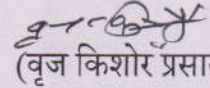 (वृज किशोर प्रसा